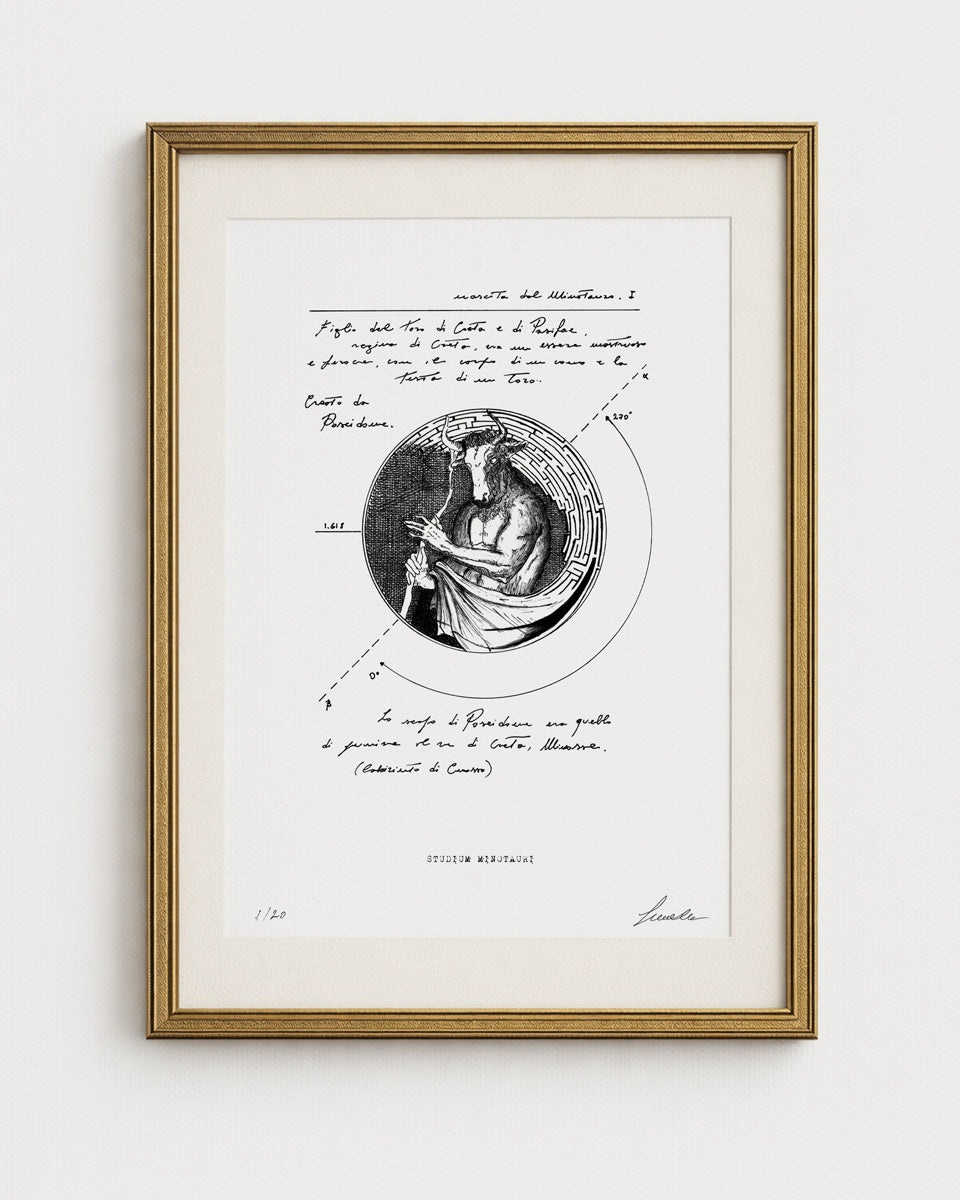 nascita del Minotauro. I
Figlio del toro di Creta e di Pasifae,
regina di Creta, era un essere mostruoso
e feroce, con il corpo di un uomo e la
testa di un toro.
Creato da
Poseidone.
α
270°
1.618
0°
β
Lo scopo di Poseidone era quello
di punire il re di Creta, Minosse.
(labirinto di Cnosso)
STUDIUM MINOTAURI
1/20